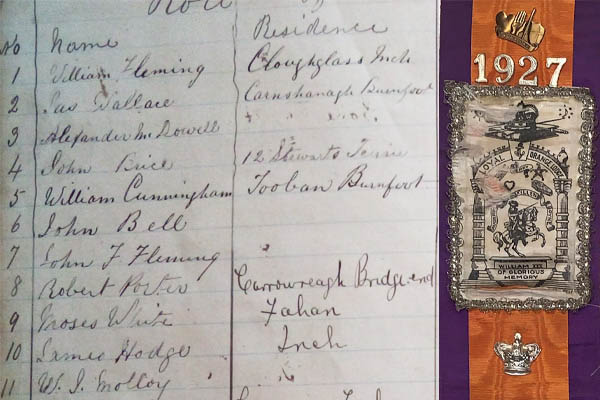 Roll
No Name Residence
1 William Fleming Cloughglass Inch
2 Jas Wallace Carnshanagh Burnfoot
3 Alexander McDowell
4 John Brice 12 Stewarts
5 William Cunningham Tooban Burnfoot
6 John Bell
7 John F Fleming
8 Robert Porter Carrowreagh Bridgend
9 Moses White Fahan
10 James Hodge Inch
11 W. J. Molloy
1927
LOYAL ORANGE
WILLIAM III
OF GLORIOUS
MEMORY